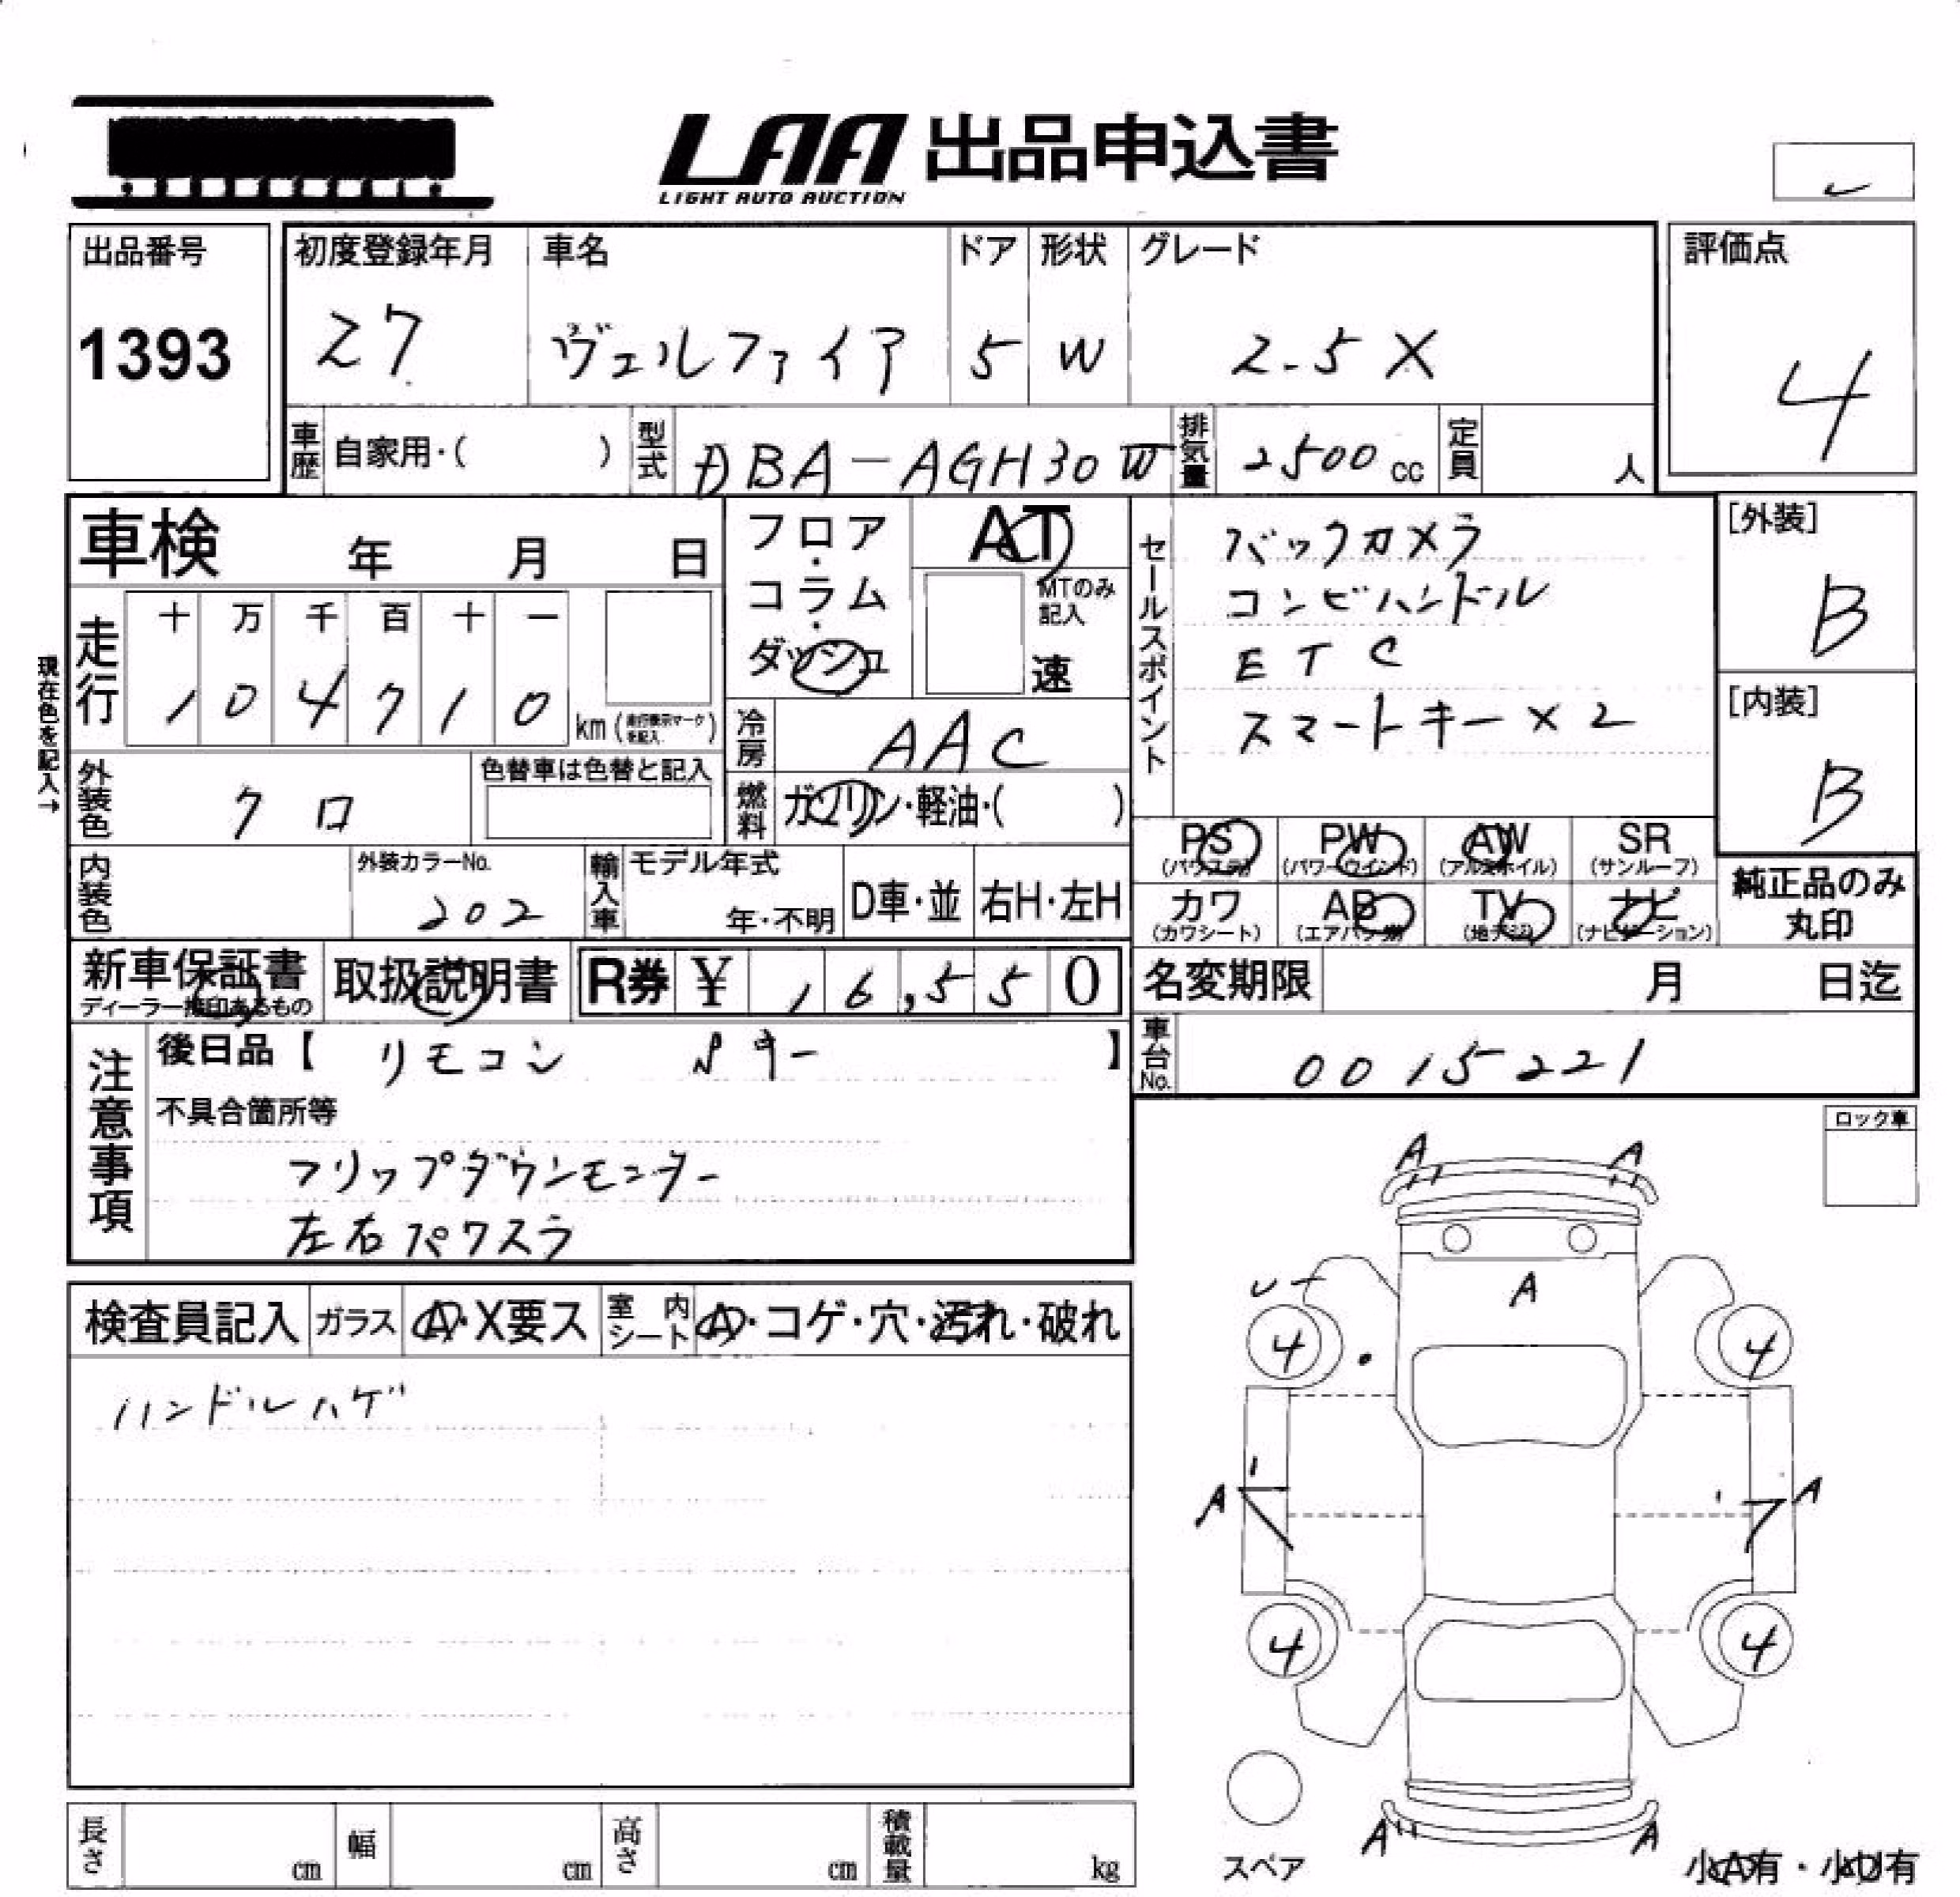 LAA 出品申込書
LIGHT AUTO AUCTION
出品番号
1393
初度登録年月
27
車名
ヴェルファイア
ドア
5
形状
W
グレード
2.5 X
評価点
4
車歴
自家用・( )
型式
DBA-AGH30W
排気量
2500 cc
定員
人
[外装]
B
[内装]
B
車検 年 月 日
フロア・コラム・ダッシュ
AT
MTのみ記入
速
セールスポイント
バックカメラ
コンビハンドル
ETC
スマートキー×2
現在色を記入→
走行
十 万 千 百 十 一
1 0 4 7 1 0
km (走行表示マークを記入)
冷房
AAC
外装色
クロ
色替車は色替と記入
燃料
ガソリン・軽油・( )
PS (パワステ)
PW (パワーウインド)
AW (アルミホイル)
SR (サンルーフ)
カワ (カワシート)
AB (エアバッグ)
TV (地デジ)
ナビ (ナビゲーション)
純正品のみ丸印
内装色
外装カラーNo.
202
輸入車
モデル年式
年・不明
D車・並
右H・左H
新車保証書
ディーラー捺印あるもの
取扱説明書
R券 ¥ 16,550
名変期限 月 日迄
車台No.
0015221
注意事項
後日品【 リモコン 】
不具合箇所等
フリップダウンモニター
左右パワスラ
ロック車
検査員記入
ガラス
A・X要ス
室内シート
A・コゲ・穴・汚れ・破れ
ハンドルハゲ
A A
A
4 4
A A
4 4
A A
スペア
小A有・小U有
長さ cm
幅 cm
高さ cm
積載量 kg